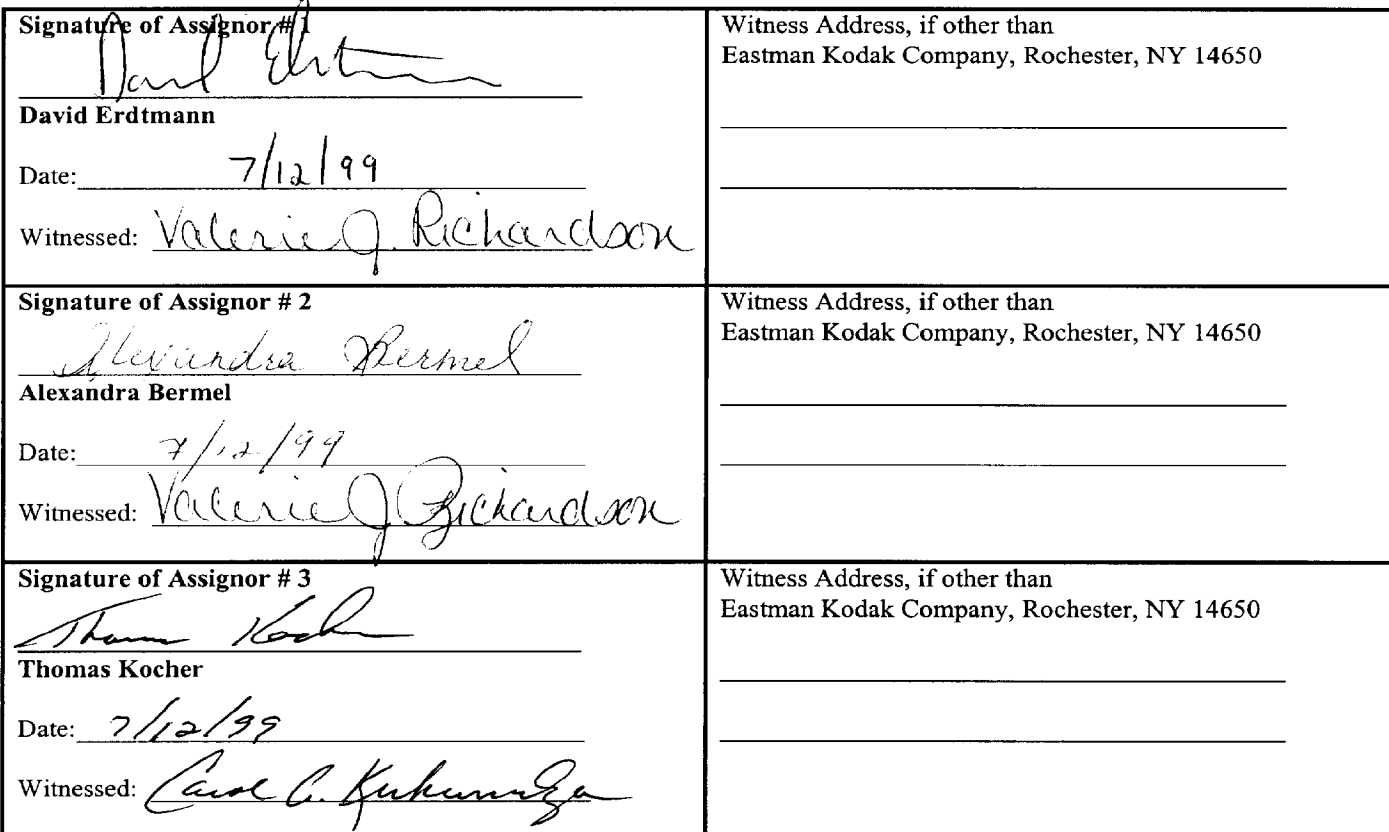 Signature of Assignor # 1
David Erdtmann
David Erdtmann
Date: 7/12/99
Witnessed: Valerie J. Richardson
Witness Address, if other than
Eastman Kodak Company, Rochester, NY 14650
Signature of Assignor # 2
Alexandra Bermel
Alexandra Bermel
Date: 7/12/99
Witnessed: Valerie J. Richardson
Witness Address, if other than
Eastman Kodak Company, Rochester, NY 14650
Signature of Assignor # 3
Thomas Kocher
Thomas Kocher
Date: 7/12/99
Witnessed: Carol A.
Witness Address, if other than
Eastman Kodak Company, Rochester, NY 14650